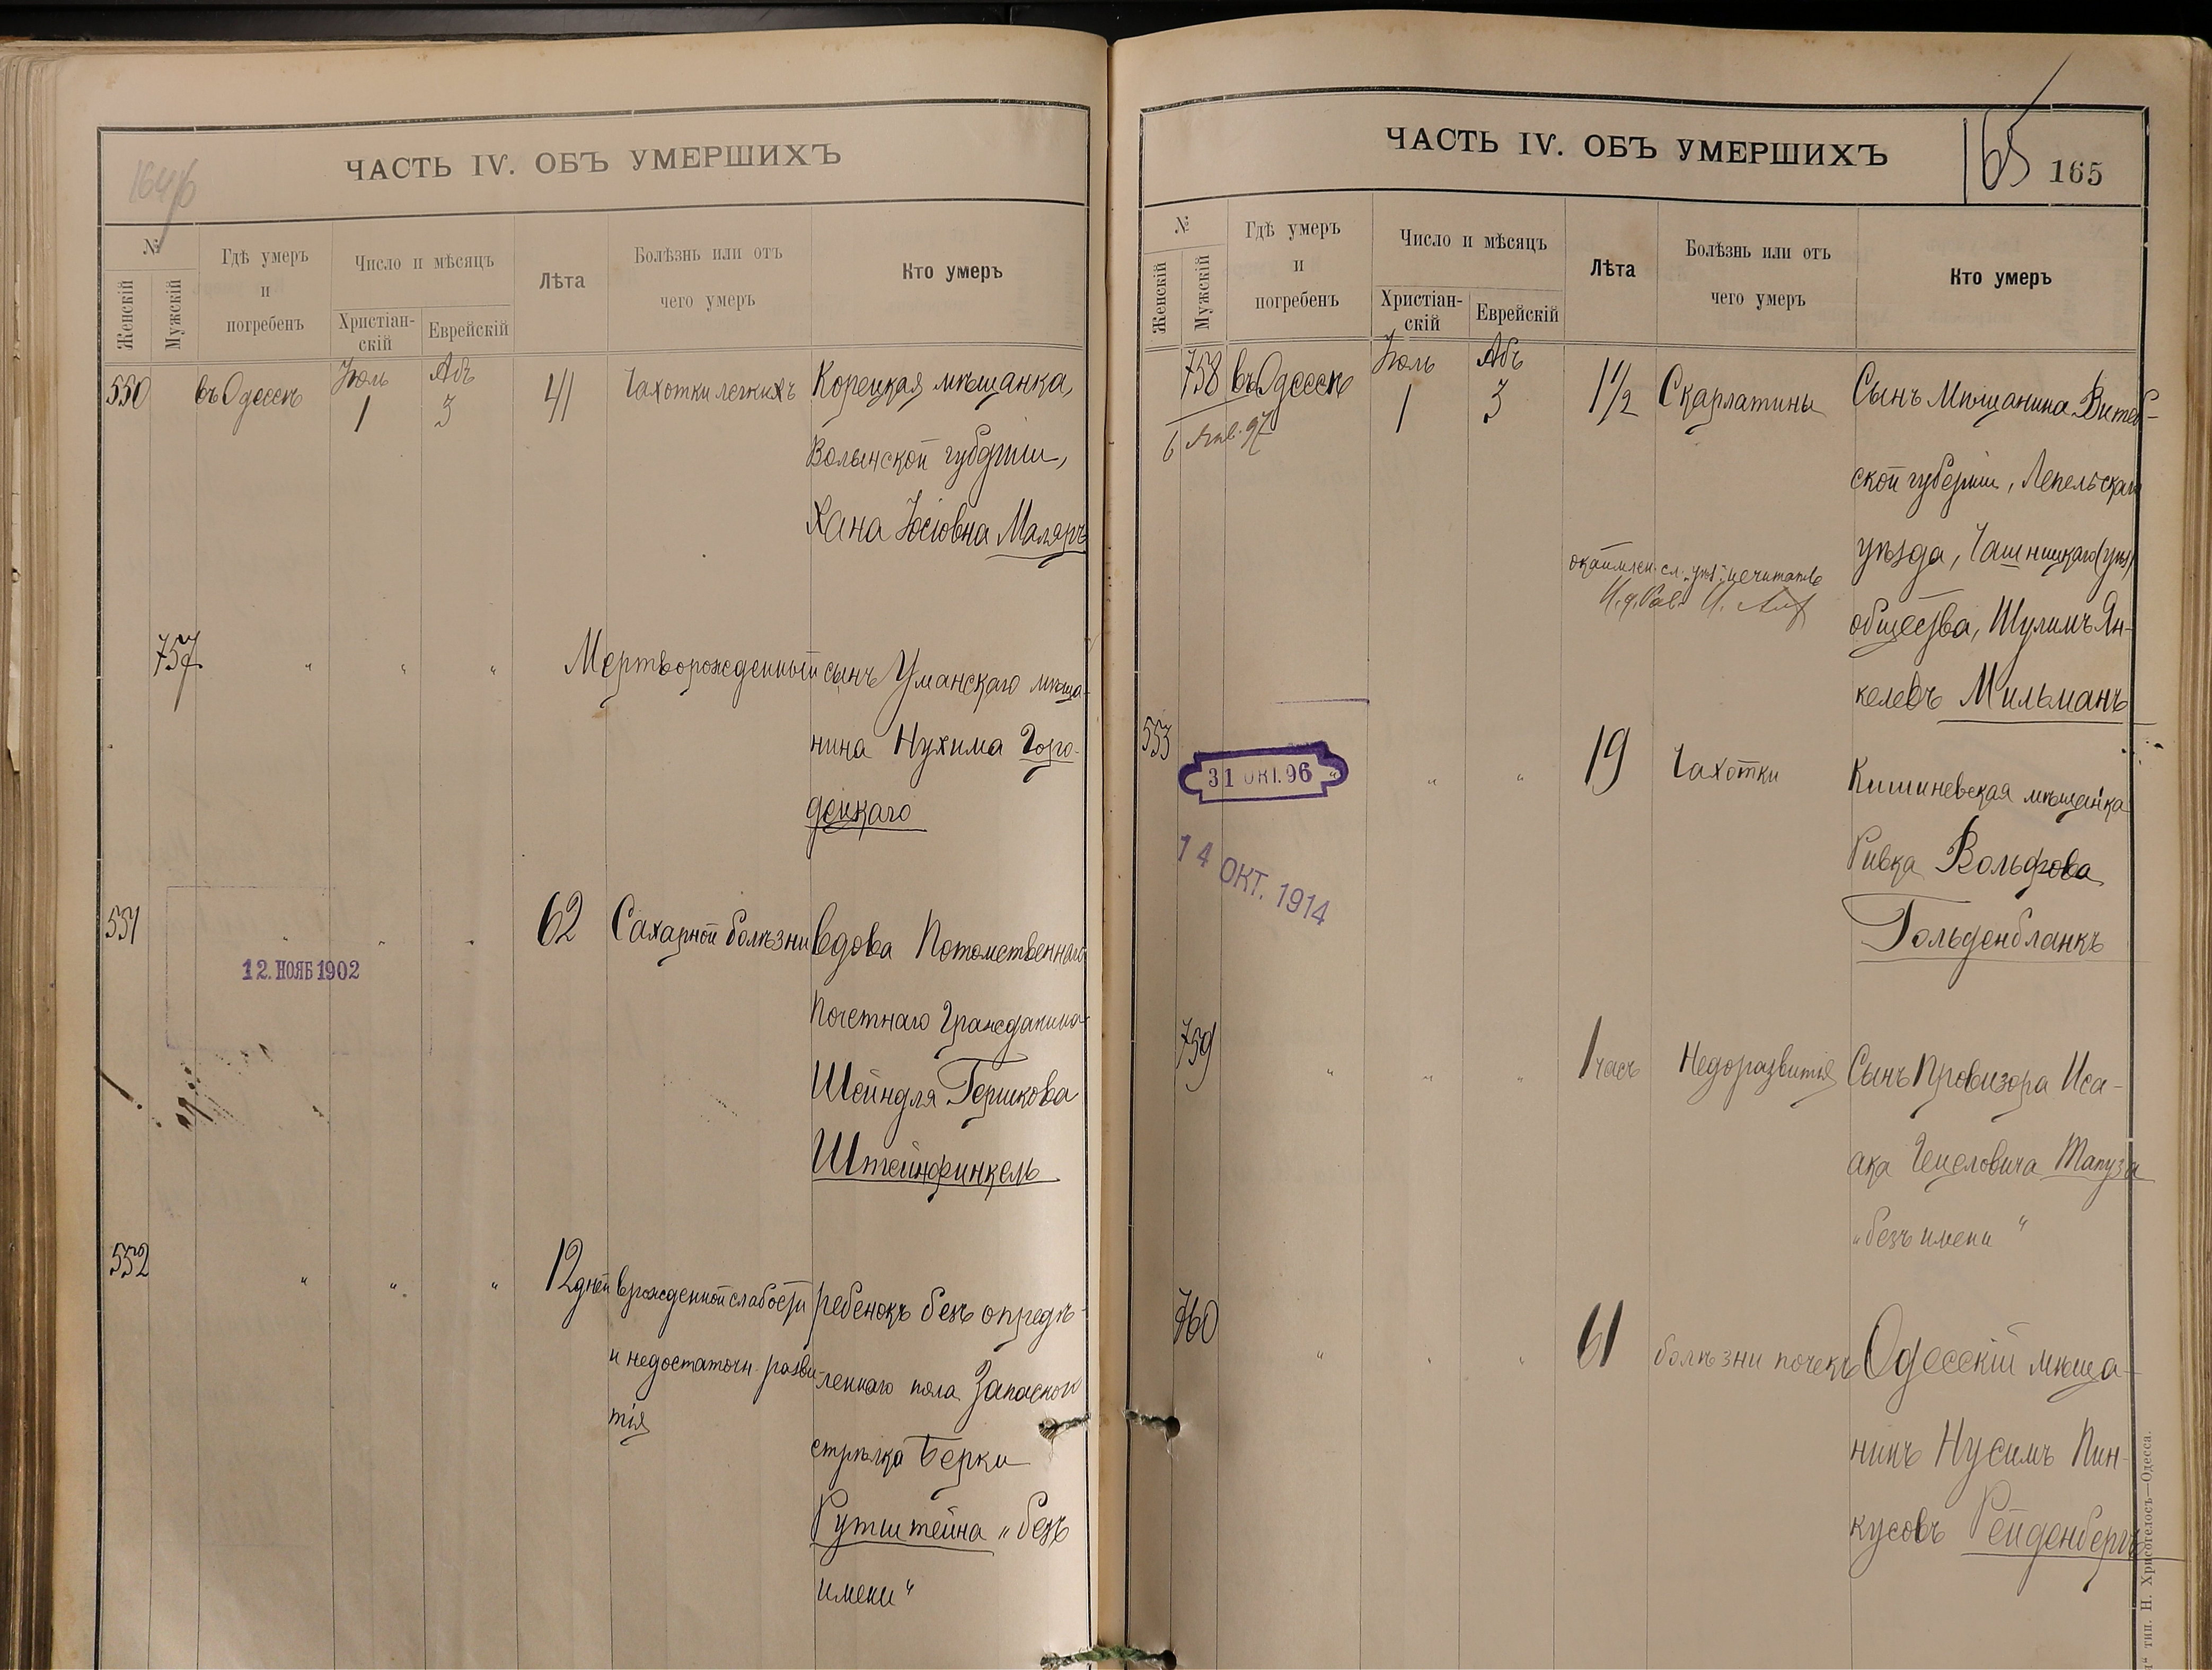 164/б
ЧАСТЬ IV. ОБЪ УМЕРШИХЪ
№
Женскій
Мужскій
Гдѣ умеръ
и
погребенъ
Число и мѣсяцъ
Христіан-
скій
Еврейскій
Лѣта
Болѣзнь или отъ
чего умеръ
Кто умеръ
Іюль Абъ
550 въ Одессѣ 1 3 41 Чахотки легкихъ Корецкая мѣщанка,
Волынской губерніи,
Хана Іосіовна Маляръ
757 " " " Мертворожденный сынъ Уманскаго мѣща-
нина Нухима Горо-
децкаго
551 " " " 62 Сахарной болѣзни вдова Потомственнаго
12. НОЯБ 1902
Почетнаго Гражданина
Шейндля Гершкова
Штейнфинкель
552 " " " 12 дней врожденной слабости ребенокъ безъ опредѣ-
и недостаточн. разви- леннаго пола Запасного
тія
стрѣлка Берки
Рутштейна „безъ
имени"
ЧАСТЬ IV. ОБЪ УМЕРШИХЪ
165
165
№
Женскій
Мужскій
Гдѣ умеръ
и
погребенъ
Число и мѣсяцъ
Христіан-
скій
Еврейскій
Лѣта
Болѣзнь или отъ
чего умеръ
Кто умеръ
Іюль Абъ
758 въ Одессѣ 1 3 1 1/2 Скарлатины Сынъ Мѣщанина Витеб-
6 Янв. 97
ской губерніи, Лепельскаго
уѣзда, Чашницкаго (уѣз)
окаймлен. сл. „уѣз" не читать
И. д. Рав.
общества, Шулимъ Ян-
келевъ Мильманъ
553 " " " 19 Чахотки Кишиневская мѣщанка
31 ОКТ. 96
Ривка Вольфова
14 ОКТ. 1914
Гольденбланкъ
759 " " " 1 часъ Недоразвитія Сынъ Провизора Иса-
ака Гецеловича Тапуза
„безъ имени"
760 " " " 61 болѣзни почекъ Одесскій мѣща-
нинъ Нусимъ Пин-
кусовъ Рейденбергъ
тип. Н. Хрисогелосъ—Одесса.